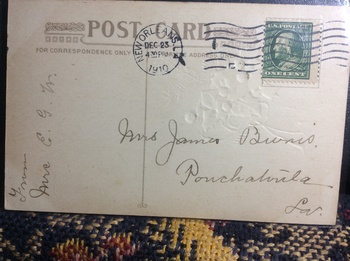 POST CARD
FOR CORRESPONDENCE ONLY
ADDRESS ONLY
NEW ORLEANS, LA
DEC 23
4 30 PM
1910
U.S. POSTAGE
ONE CENT
Mrs James
Ponchatoula
La.
From
Mrs E. G. W.